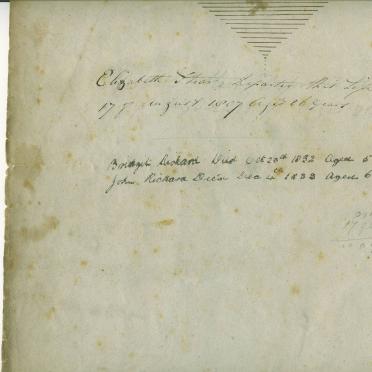 Elizabeth departed this Life
17th August 1807 Aged 26 years
Bridget Rickard Died Oct 20th 1832 Aged 5
John Rickard Died Dec 4th 1833 Aged 6